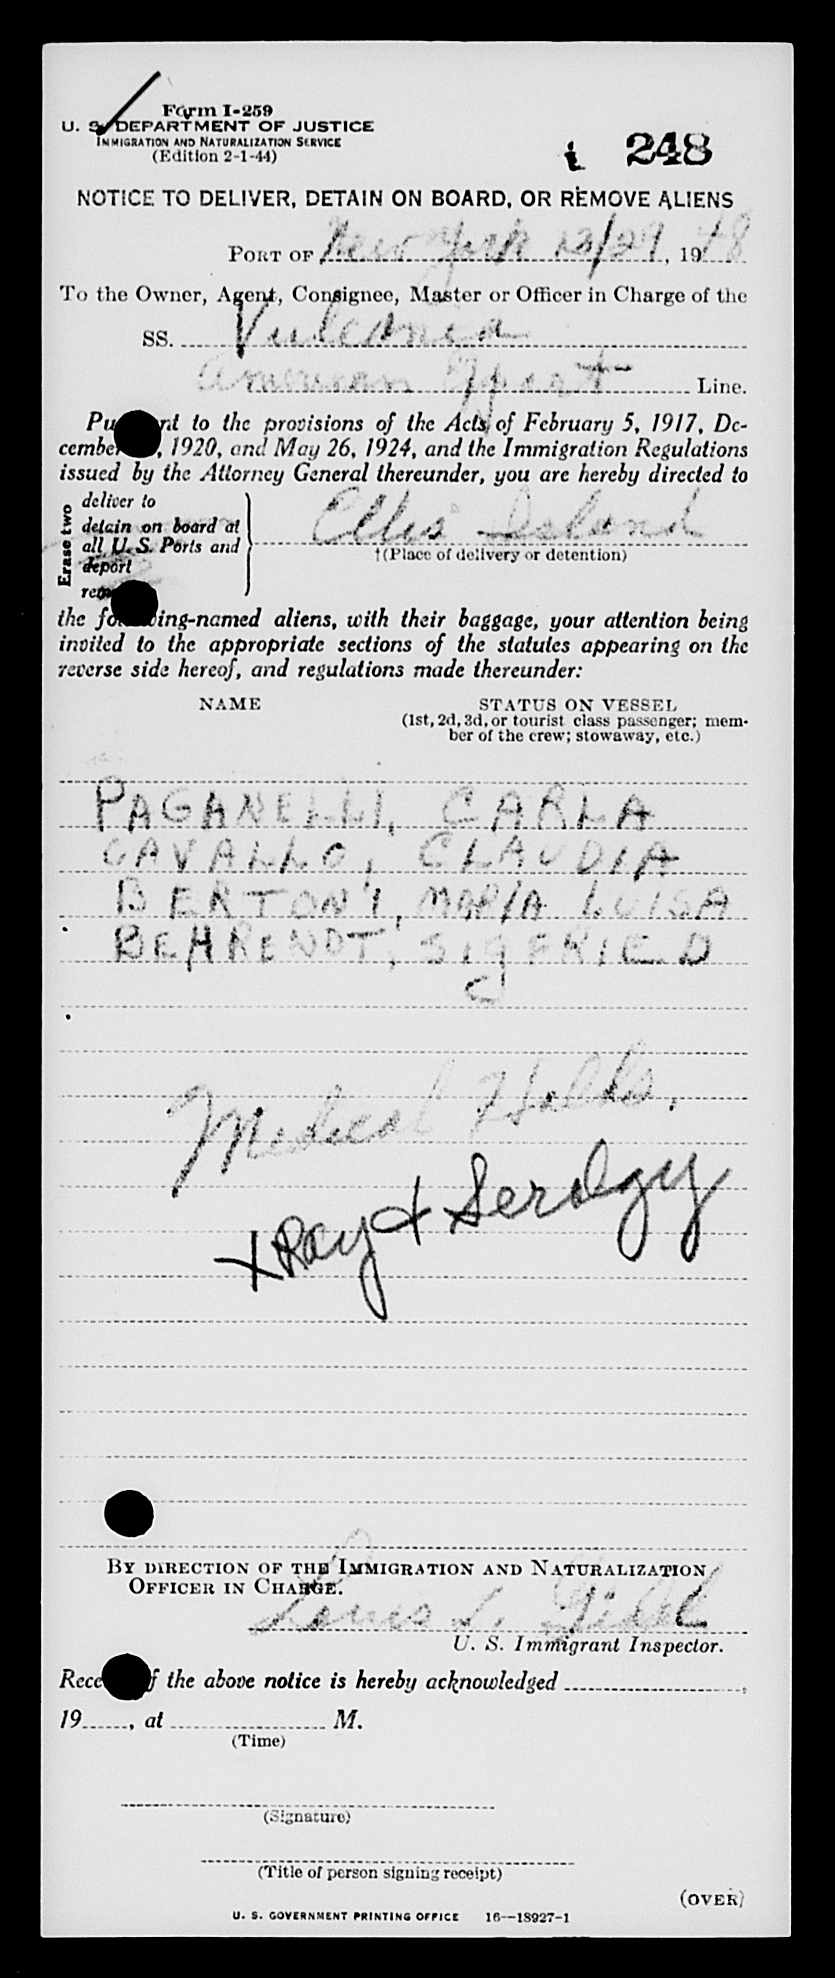 Form I-259
U. S. DEPARTMENT OF JUSTICE
IMMIGRATION AND NATURALIZATION SERVICE
(Edition 2-1-44)
248
NOTICE TO DELIVER, DETAIN ON BOARD, OR REMOVE ALIENS
PORT OF New York 12/29, 1948
To the Owner, Agent, Consignee, Master or Officer in Charge of the
SS. Vulcania
American Export Line.
Pu nt to the provisions of the Acts of February 5, 1917, De-
cember , 1920, and May 26, 1924, and the Immigration Regulations
issued by the Attorney General thereunder, you are hereby directed to
Erase two
deliver to
detain on board at
all U. S. Ports and
deport
rem
Ellis Island
†(Place of delivery or detention)
the fol wing-named aliens, with their baggage, your attention being
invited to the appropriate sections of the statutes appearing on the
reverse side hereof, and regulations made thereunder:
NAME STATUS ON VESSEL
(1st, 2d, 3d, or tourist class passenger; mem-
ber of the crew; stowaway, etc.)
PAGANELLI, CARLA
CAVALLO, CLAUDIA
BERTONI, MARIA LUISA
BEHRENDT, SIGFRIED
Medical Holds.
X Ray + Serology
BY DIRECTION OF THE IMMIGRATION AND NATURALIZATION
OFFICER IN CHARGE.
Louis
U. S. Immigrant Inspector.
Rece f the above notice is hereby acknowledged ,
19 , at M.
(Time)
(Signature)
(Title of person signing receipt)
(OVER)
U. S. GOVERNMENT PRINTING OFFICE 16—18927-1